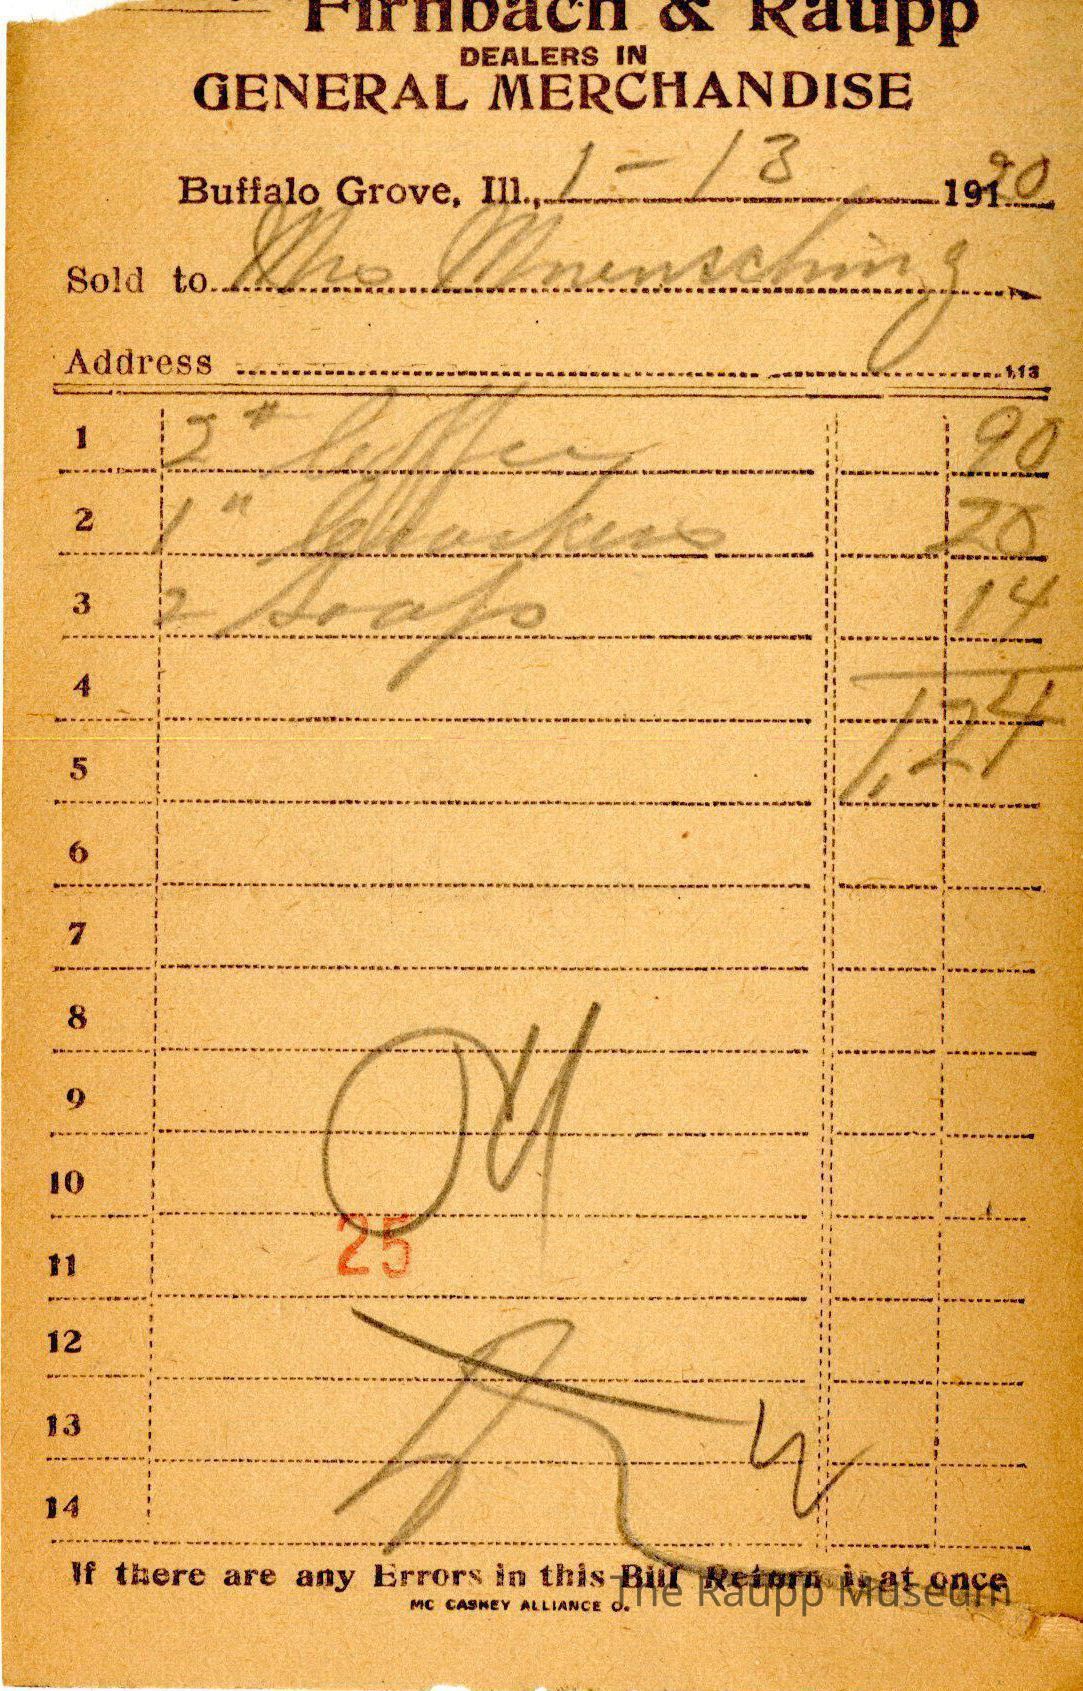 Firnbach & Raupp
DEALERS IN
GENERAL MERCHANDISE
Buffalo Grove, Ill., 1-13 191 20
Sold to Mrs Moensching
Address 113
1 2 # Coffee 90
2 1 " Crackers 20
3 2 Soaps 14
4 1.24
5
6
7
8
9
10
25
11
12
13
14
If there are any Errors in this Bill Return is at once
MC CASKEY ALLIANCE O.
The Raupp Museum